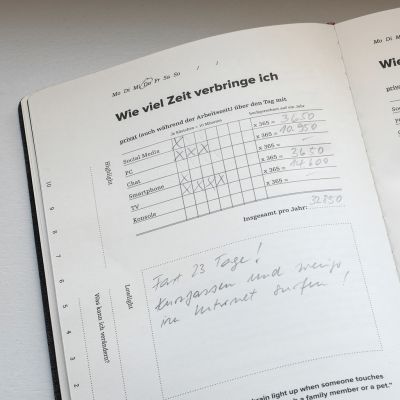 Mo Di Mi Do Fr Sa So / /
Wie viel Zeit verbringe ich
privat (auch während der Arbeitszeit) über den Tag mit
in Kästchen = 10 Minuten
hochgerechnet auf ein Jahr
Social Media x 365 = 3650
PC x 365 = 10.950
Chat x 365 =
Smartphone x 365 = 3650
TV x 365 = 14600
Konsole x 365 =
Insgesamt pro Jahr: 32850
Highlight
Lowlight
Was kann ich verändern?
10
9
8
7
6
5
4
3
2
Fast 23 Tage!
kurzfassen und wenig
im Internet surfen!
brain light up when someone touches
a family member or a pet."
Mo Di M
Wie
privat